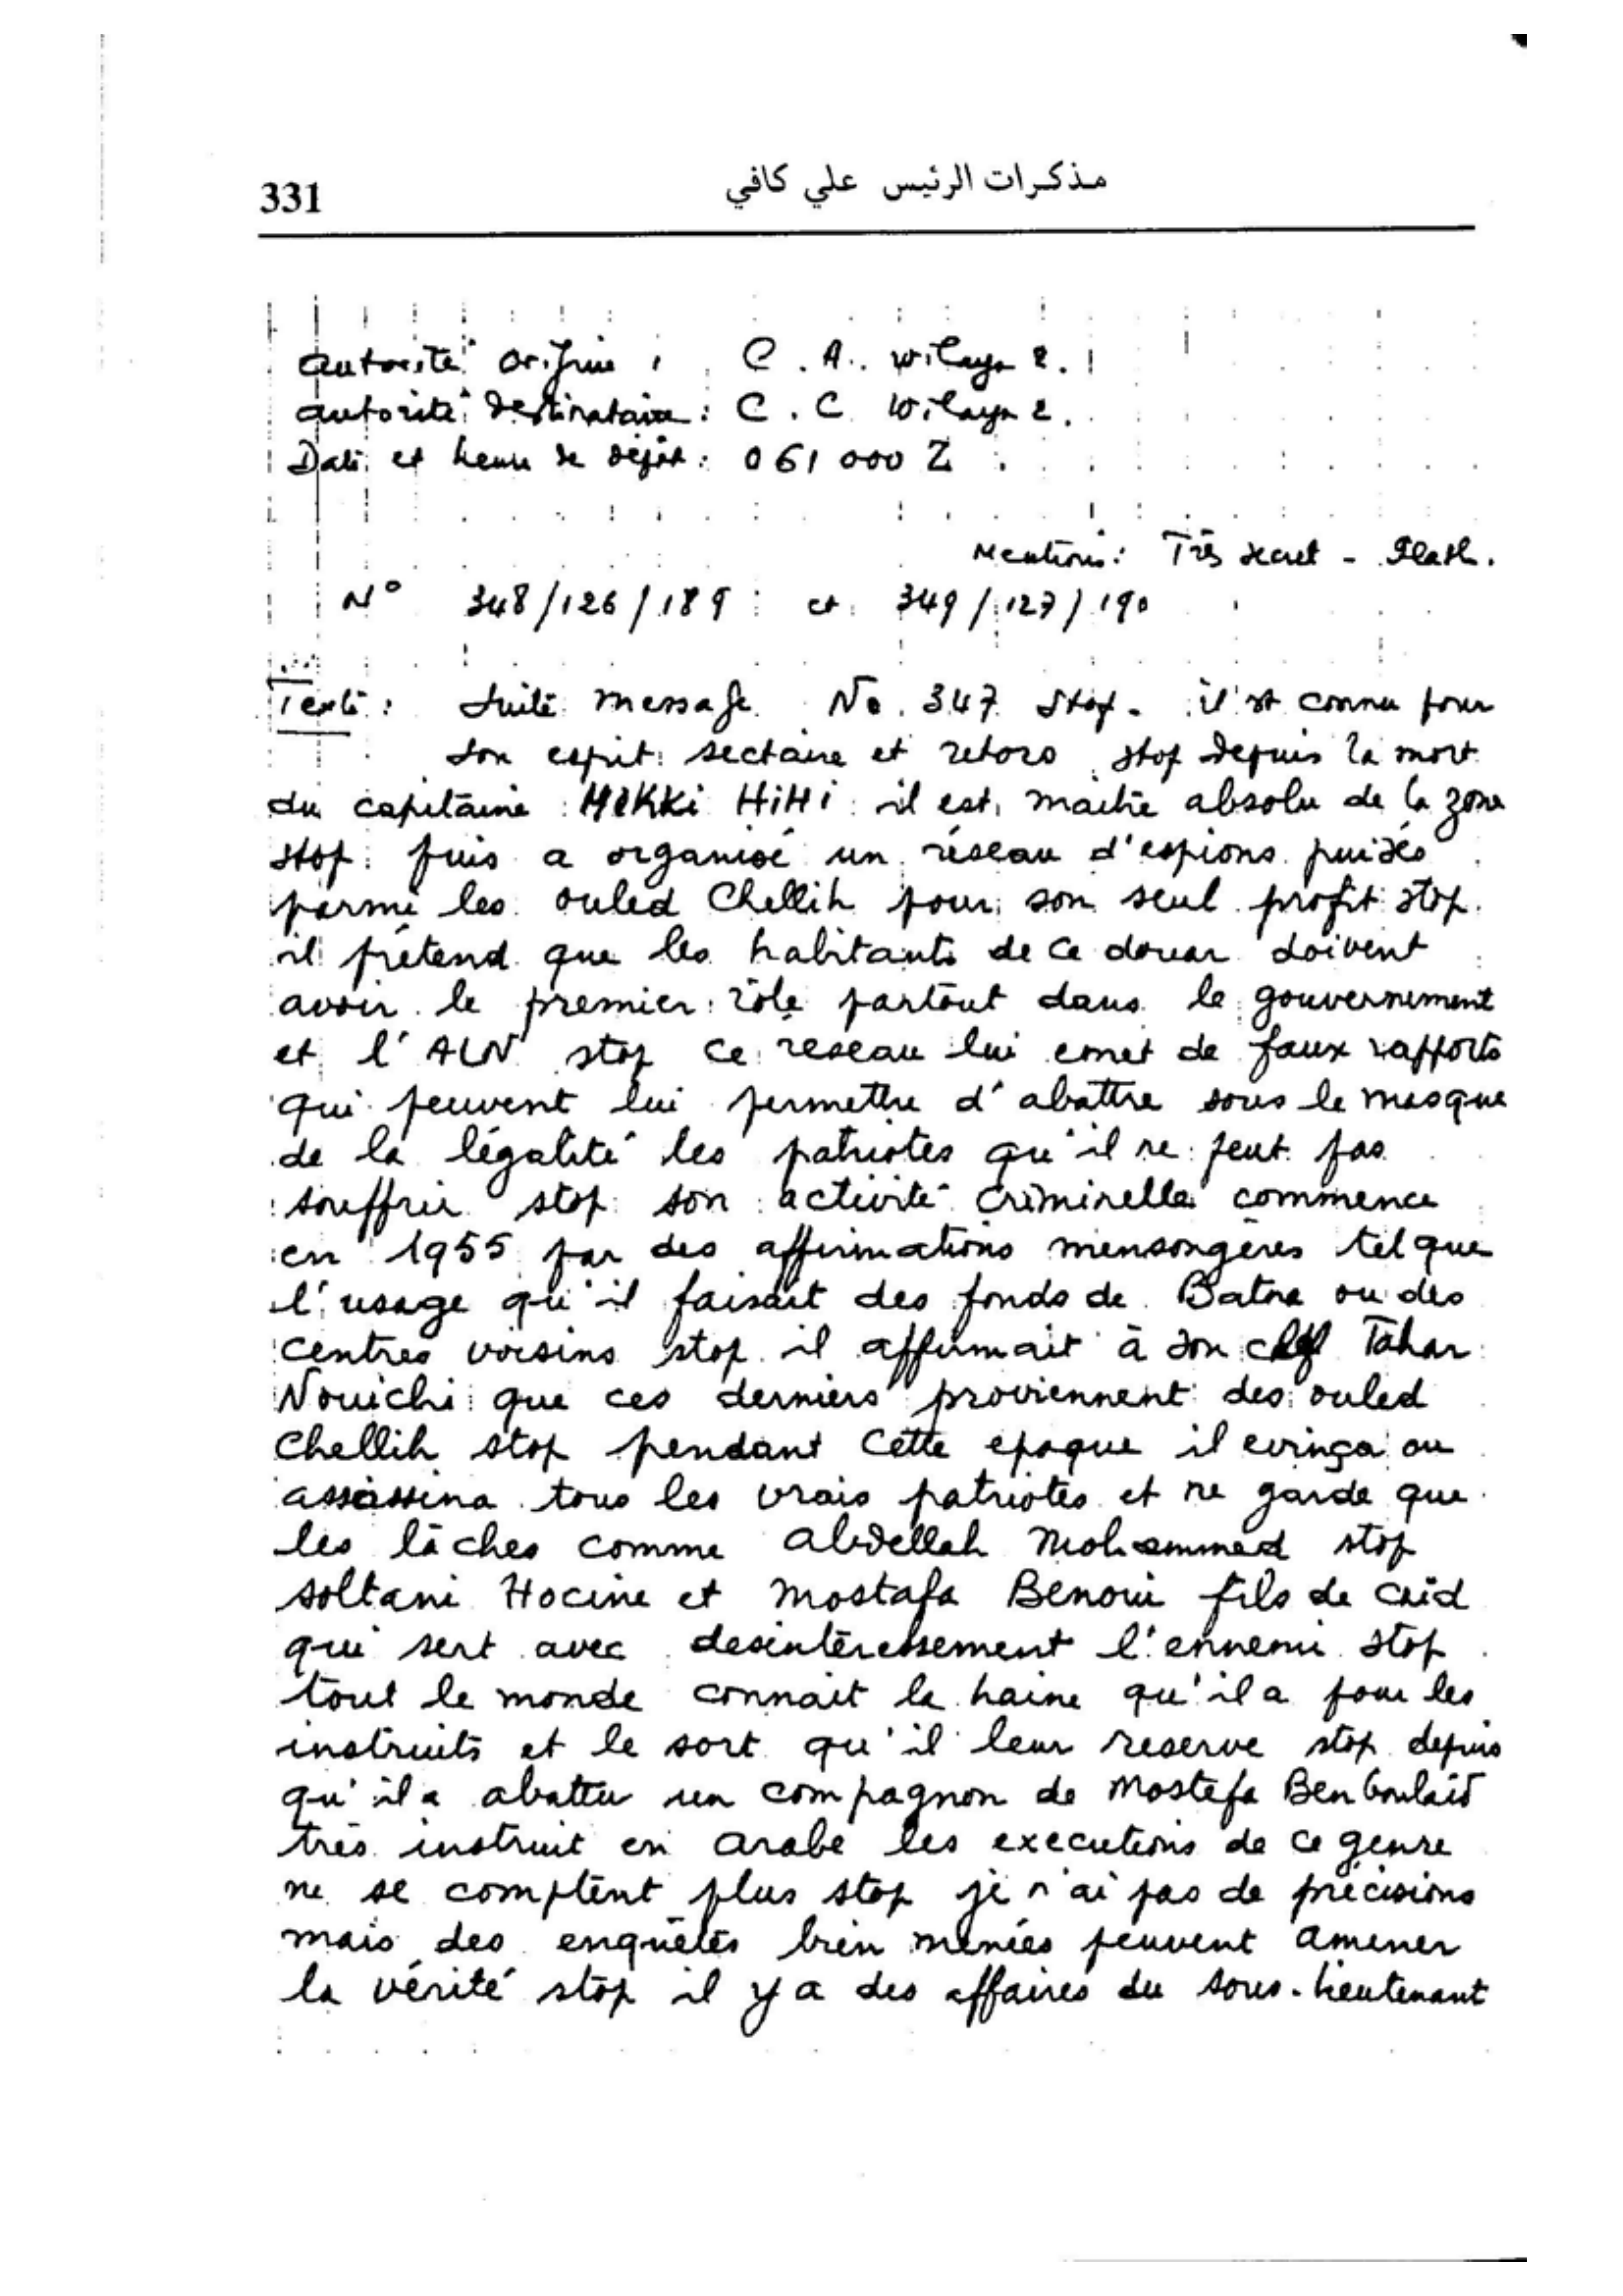 331
مذكرات الرئيس علي كافي
autorité origine : C . A . wilaya 2 .
autorité destinataire : C . C wilaya 2 .
Date et heure de dépôt : 061 000 Z
Mentions : Très secret - Flash .
N° 348/126/189 et 349/127/190
Texte : suite message No . 347 stop . il est connu pour
son esprit sectaire et retors stop depuis la mort
du capitaine HiHi il est maitre absolu de la zone
stop . puis a organisé un réseau d'espions puisés
parmi les ouled Chellih pour son seul profit stop .
il prétend que les habitants de ce douar doivent
avoir le premier rôle partout dans le gouvernement
et l'ALN stop ce reseau lui emet de faux rapports
qui peuvent lui permettre d'abattre sous le masque
de la légalité les patriotes qu'il ne peut pas
souffrir stop son activité criminelle commence
en 1955 par des affirmations mensongères tel que
l'usage qu'il faisait des fonds de Batna ou des
centres voisins stop il affirmait à son chef Tahar
Nouichi que ces derniers proviennent des ouled
Chellih stop pendant cette epoque il evinça ou
assassina tous les vrais patriotes et ne garde que
les lâches comme abdellah Mohammed stop
soltani Hocine et mostafa Benoui fils de caïd
qui sert avec desintéressement l'ennemi stop
tout le monde connait la haine qu'il a pour les
instruits et le sort qu'il leur reserve stop depuis
qu'il a abattu un compagnon de Mostefa Benboulaid
très instruit en arabe les executions de ce genre
ne se comptent plus stop je n'ai pas de précisions
mais des enquêtes bien menées peuvent amener
la vérité stop il y a des affaires du sous-lieutenant